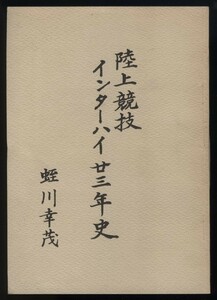 陸上競技
インターハイ廿三年史
蛭川幸茂